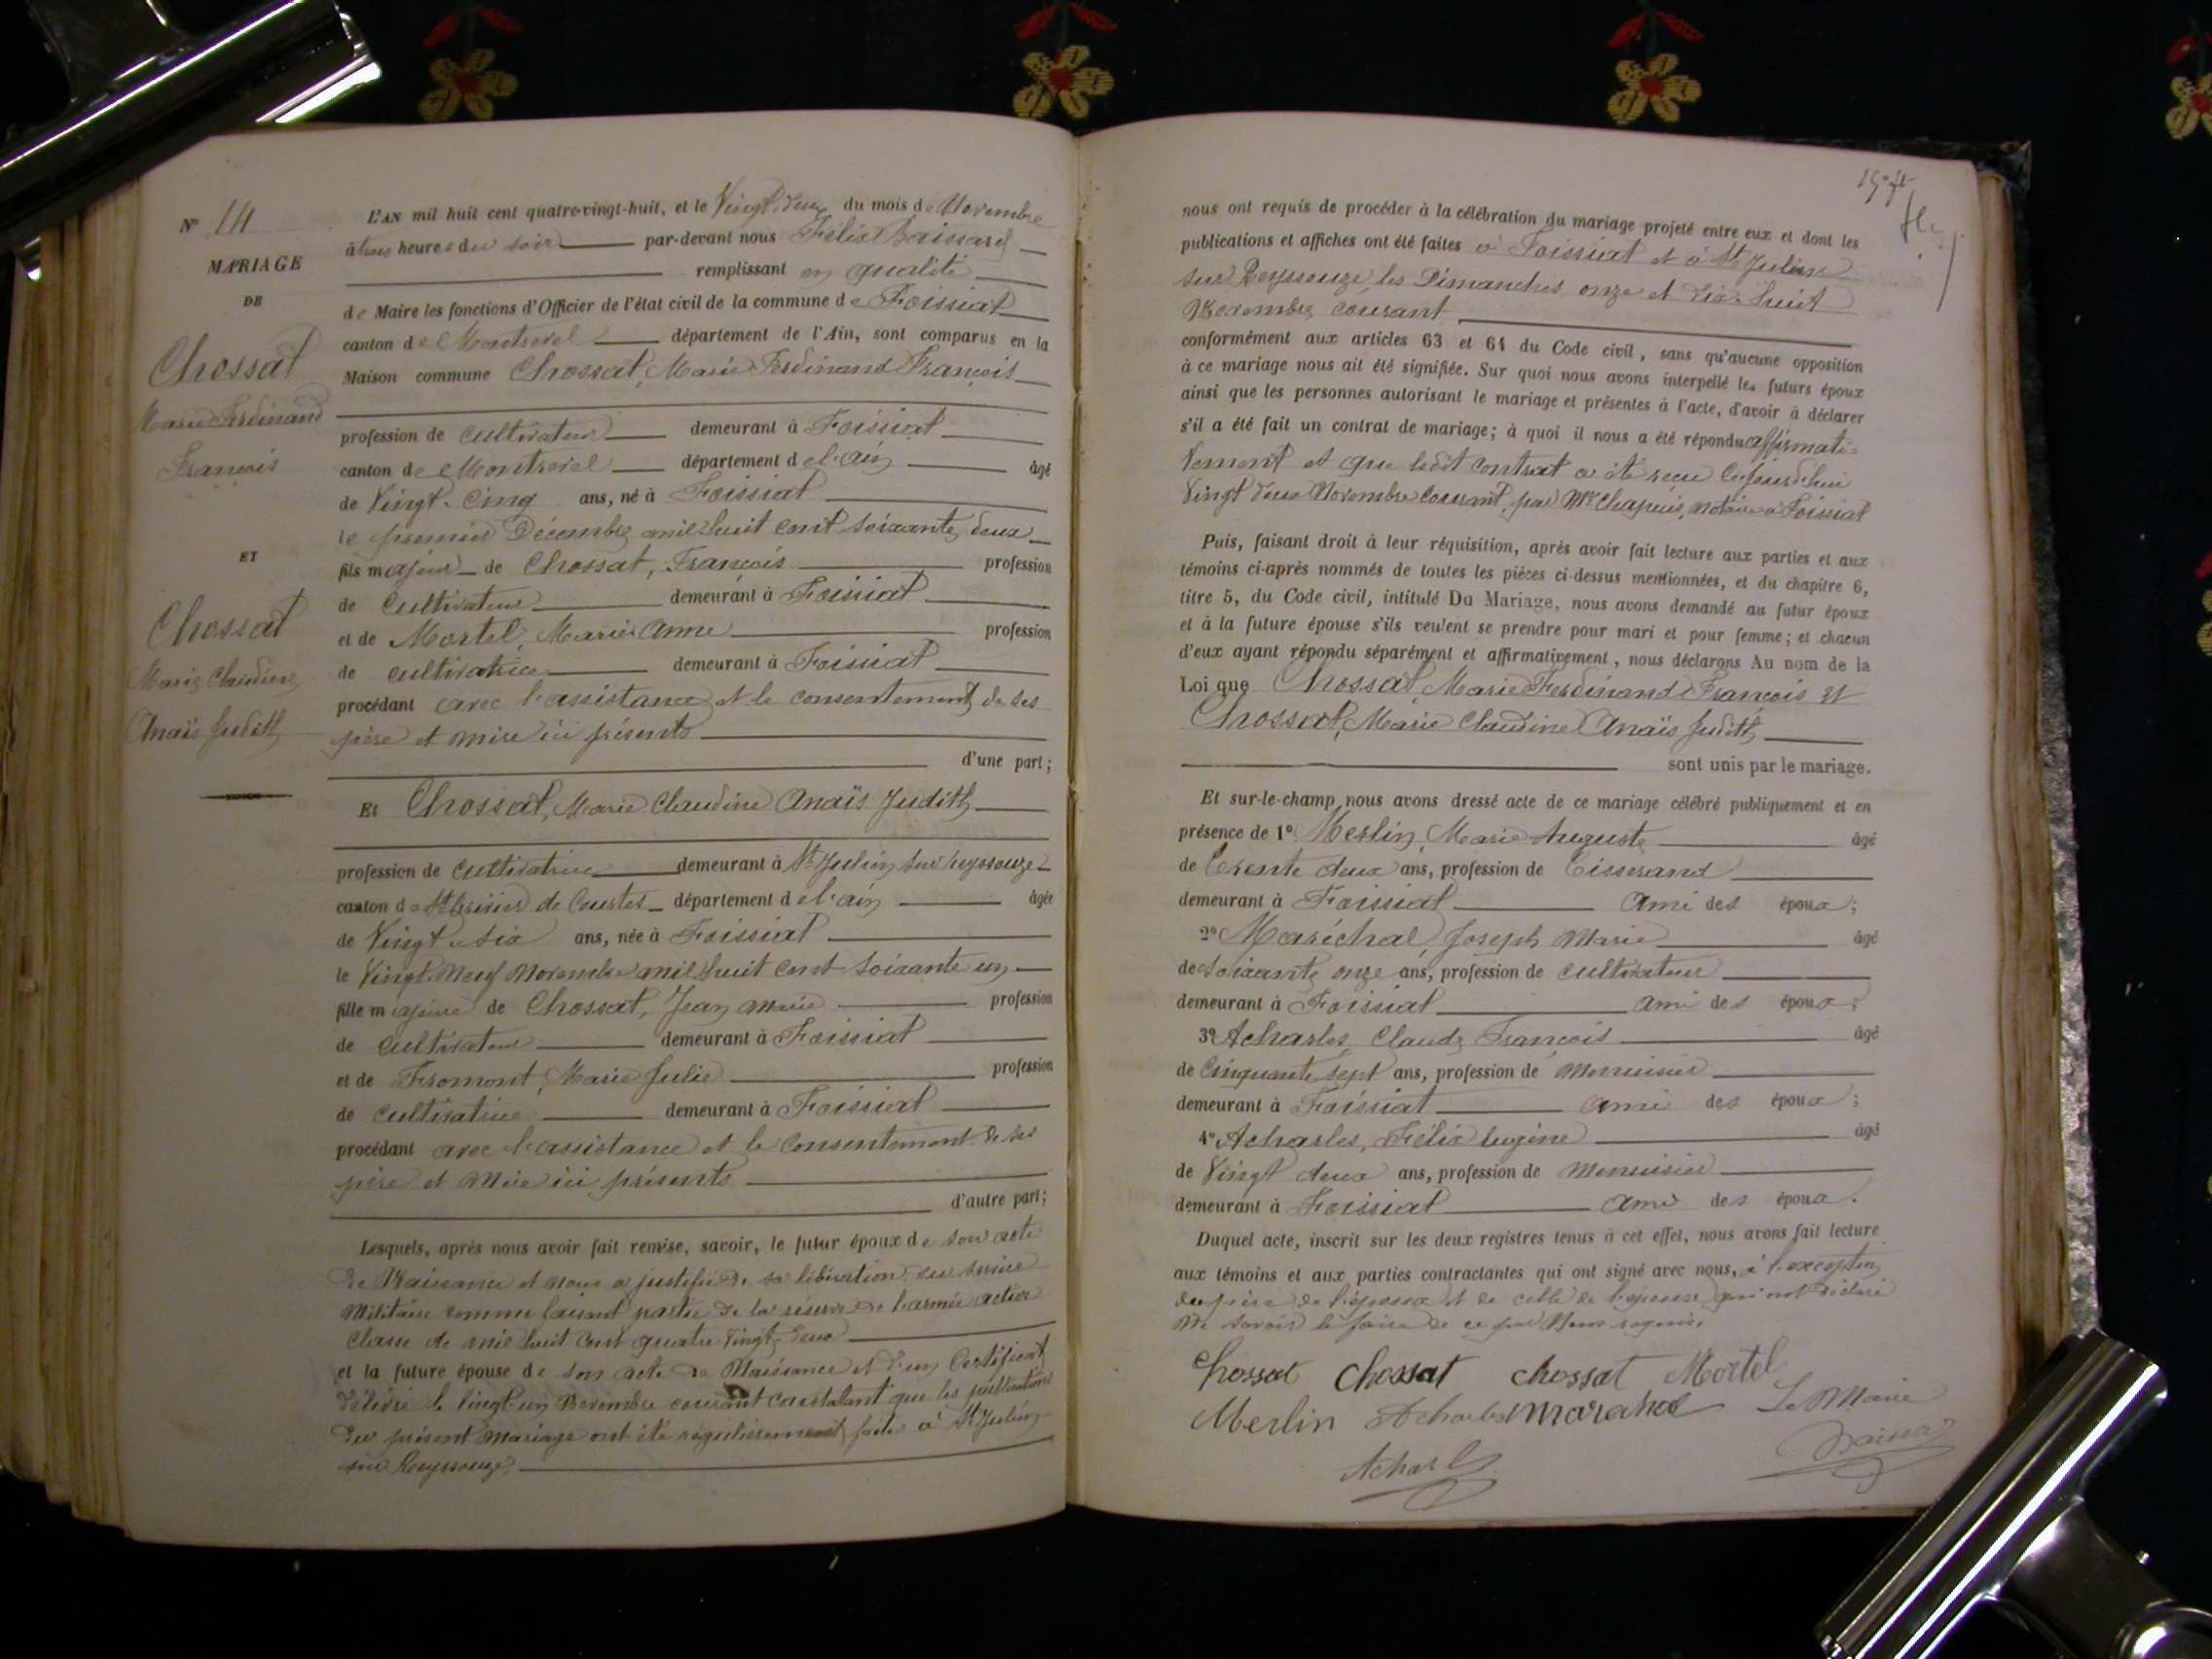 N° 14
MARIAGE
DE
Chossat
Marie Ferdinand
François
ET
Chossat
Marie Claudine
Anaïs Judith
L'AN mil huit cent quatre-vingt-huit, et le Vingt-deux du mois de Novembre
à trois heures du soir par-devant nous Félix Baissard
remplissant en qualité
de Maire les fonctions d'Officier de l'état civil de la commune de Foissiat
canton de Montrevel département de l'Ain, sont comparus en la
Maison commune Chossat, Marie Ferdinand François
profession de cultivateur demeurant à Foissiat
canton de Montrevel département de l'ain âgé
de Vingt-cinq ans, né à Foissiat
le premier Décembre mil huit cent soixante deux
fils majeur de Chossat, François profession
de cultivateur demeurant à Foissiat
et de Mortel, Marie Anne profession
de cultivatrice demeurant à Foissiat
procédant avec l'assistance et le consentement de ses
père et mère ici présents
d'une part;
Et Chossat, Marie Claudine Anaïs Judith
profession de cultivatrice demeurant à St Julien sur Reyssouze
canton de St Trivier de Courtes département de l'ain âgée
de Vingt-six ans, née à Foissiat
le Vingt-Neuf Novembre mil huit cent soixante un
fille majeure de Chossat, Jean Marie profession
de cultivateur demeurant à Foissiat
et de Fromont, Marie Julie profession
de cultivatrice demeurant à Foissiat
procédant avec l'assistance et le consentement de ses
père et mère ici présents
d'autre part;
Lesquels, après nous avoir fait remise, savoir, le futur époux de son acte
de Naissance et nous a justifié de sa libération du service
Militaire comme faisant partie de la réserve de l'armée active
classe de mil huit cent quatre vingt deux
et la future épouse de son acte de Naissance et d'un Certificat
délivré le vingt-un Novembre courant constatant que les publications
du présent mariage ont été régulièrement faites à St Julien
sur Reyssouze.
nous ont requis de procéder à la célébration du mariage projeté entre eux et dont les
publications et affiches ont été faites à Foissiat et à St Julien
sur Reyssouze, les Dimanches onze et dix-huit
Novembre courant
conformément aux articles 63 et 64 du Code civil, sans qu'aucune opposition
à ce mariage nous ait été signifiée. Sur quoi nous avons interpellé les futurs époux
ainsi que les personnes autorisant le mariage et présentes à l'acte, d'avoir à déclarer
s'il a été fait un contrat de mariage; à quoi il nous a été répondu affirmati-
vement et que ledit contrat a été reçu cejourd'hui
Vingt deux Novembre courant, par Me Chapuis, notaire à Foissiat
Puis, faisant droit à leur réquisition, après avoir fait lecture aux parties et aux
témoins ci-après nommés de toutes les pièces ci-dessus mentionnées, et du chapitre 6,
titre 5, du Code civil, intitulé Du Mariage, nous avons demandé au futur époux
et à la future épouse s'ils veulent se prendre pour mari et pour femme; et chacun
d'eux ayant répondu séparément et affirmativement, nous déclarons Au nom de la
Loi que Chossat, Marie Ferdinand François et
Chossat, Marie Claudine Anaïs Judith
sont unis par le mariage.
Et sur-le-champ nous avons dressé acte de ce mariage célébré publiquement et en
présence de 1° Merlin, Marie Auguste âgé
de trente deux ans, profession de Tisserand
demeurant à Foissiat ami des époux;
2° Maréchal, Joseph Marie âgé
de soixante onze ans, profession de cultivateur
demeurant à Foissiat ami des époux;
3° Acharles, Claude François âgé
de Cinquante sept ans, profession de Menuisier
demeurant à Foissiat ami des époux;
4° Acharles, Félix Eugène âgé
de Vingt deux ans, profession de Menuisier
demeurant à Foissiat ami des époux.
Duquel acte, inscrit sur les deux registres tenus à cet effet, nous avons fait lecture
aux témoins et aux parties contractantes qui ont signé avec nous, à l'exception
du père de l'époux et de celle de l'épouse qui ont déclaré
ne savoir le faire de ce par Nous requis.
Chossat Chossat Chossat Mortel
Merlin Acharles Marahal Le Maire
Acharl Baissard